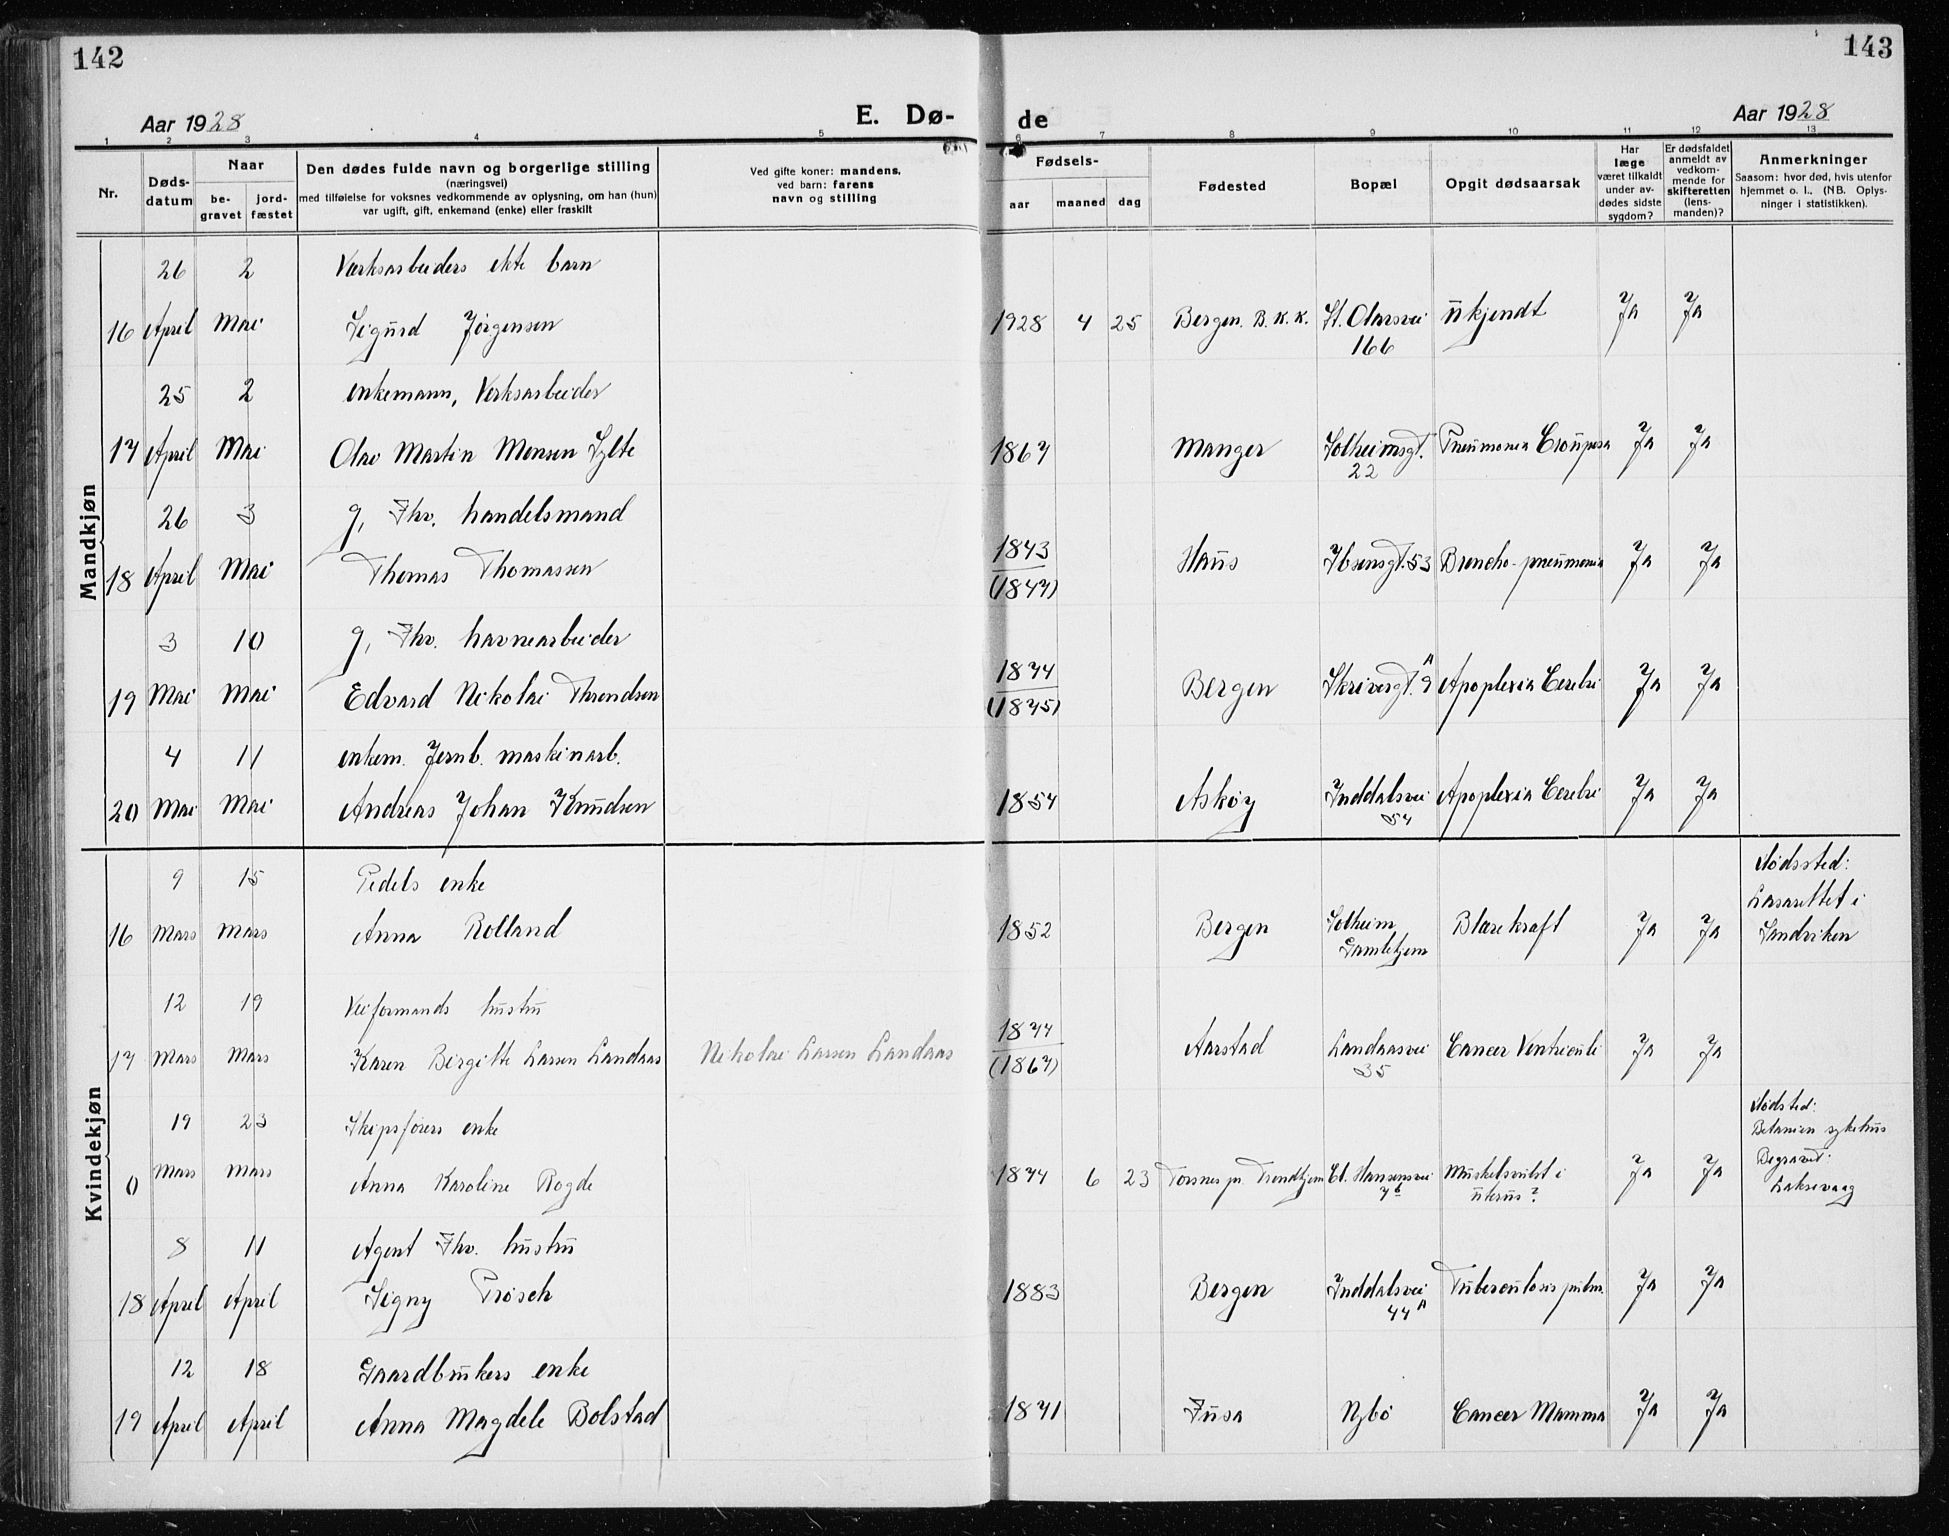 142
143
Aar 1928
E. Dø-
de
Aar 1928
1 2 3 4 5 6 7 8 9 10 11 12 13
Nr.
Døds-
datum
Naar
be-
gravet
jord-
fæstet
Den dødes fulde navn og borgerlige stilling
(næringsvei)
med tilføielse for voksnes vedkommende av oplysning, om han (hun)
var ugift, gift, enkemand (enke) eller fraskilt
Ved gifte koner: mandens,
ved barn: farens
navn og stilling
Fødsels-
aar
maaned
dag
Fødested
Bopæl
Opgit dødsaarsak
Har
læge
været tilkaldt
under av-
dødes sidste
sygdom?
Er dødsfaldet
anmeldt av
vedkom-
mende for
skifteretten
(lens-
manden)?
Anmerkninger
Saasom: hvor død, hvis utenfor
hjemmet o. l., (NB. Oplys-
ninger i statistikken).
Mandkjøn
26 2 Verksarbeiders ekte barn
16 April Mai Sigurd Jørgensen 1928 4 25 Bergen. B.K.K. St. Olavsvei ukjendt Ja Ja
166
25 2 enkemann, Verksarbeider
17 April Mai Olav Martin Monsen Sylte 1867 Manger Solheimsgt. Pneumonia Crouposa Ja Ja
22
26 3 g, Fhv. handelsmand
18 April Mai Thomas Thomassen 1843 Haus Ibsensgt. 53 Broncho-pneumonia Ja Ja
(1847)
3 10 g, Fhv. havnearbeider
19 Mai Mai Edvard Nikolai Throndsen 1874 Bergen Skrivergt. 9 A Apoplexia Cerebri Ja Ja
(1875)
4 11 enkem. Jernb. maskinarb.
20 Mai Mai Andreas Johan Knudsen 1857 Askøy Inddalsvei Apoplexia Cerebri Ja Ja
54
Kvindekjøn
9 15 Pedels enke
Dødssted:
Lasarettet i
16 Mars Mars Anna Rolland 1852 Bergen Solheim Blærekraft Ja Ja Sandviken
Gamlehjem
12 19 Veiformands hustru
17 Mars Mars Karen Birgitte Larsen Landaas Nikolai Larsen Landaas 1877 Aarstad Landaasvei Cancer Ventriculi Ja Ja
(1867) 35
19 23 Skipsførers enke
Dødsted:
Betanien sykehus
0 Mars Mars Anna Karoline Rogde 1874 6 23 Torsnes pr. Trondhjem Edv. Hansensvei Muskelsvulst i Ja Ja Begravet:
7b uterus? Laksevaag
8 11 Agent Fhv. hustru
18 April April Signy Prøsch 1883 Bergen Inddalsvei Tuberculosis pulm. Ja Ja
44 A
12 18 Gaardbrukers enke
19 April April Anna Magdele Bolstad 1841 Fusa Nybø Cancer Mamma Ja Ja